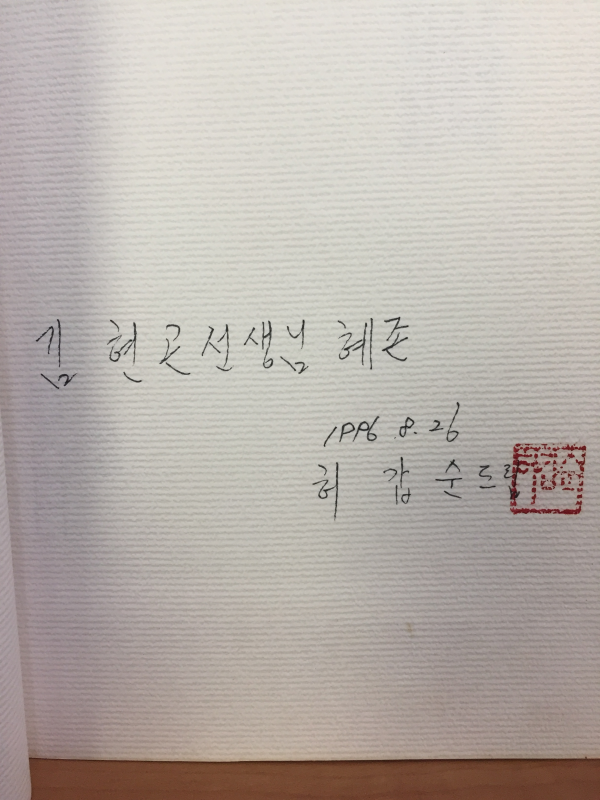 김 현곤선생님 혜존
1996. 8. 26
허 갑순드림